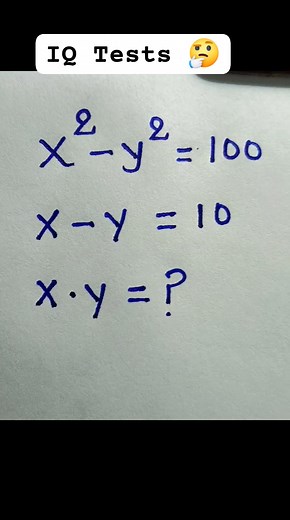 IQ Tests 🤔
x² - y² = 100
x - y = 10
x · y = ?